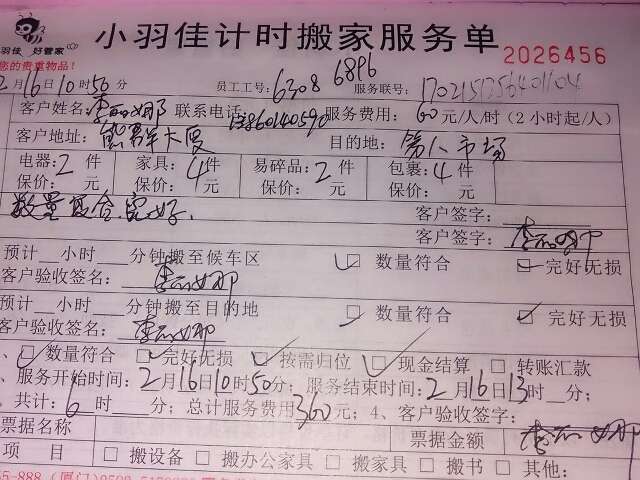 小羽佳计时搬家服务单 2026456
羽佳 好管家
您的贵重物品!
2月16日10时50分 员工工号: 6308 6896 服务联号: 17021515
客户姓名: 李丽娜 联系电话: 服务费用: 60元/人/时(2小时起/人)
客户地址: 大厦 目的地: 第八市场
电器: 2件 家具: 4件 易碎品: 2件 包裹: 4件
保价: 元 保价: 元 保价: 元 保价: 元
数量符合,完好. 客户签字:
客户签字: 李丽娜
预计__小时__分钟搬至候车区 数量符合 完好无损
客户验收签名: 李丽娜
预计__小时__分钟搬至目的地 数量符合 完好无损
客户验收签名: 李丽娜
、 数量符合 完好无损 按需归位 现金结算 转账汇款
、服务开始时间: 2月16日10时50分; 服务结束时间: 2月16日13时__分;
、共计: 6时__分; 总计服务费用360元; 4、客户签收签字:
票据名称 票据金额 李丽娜
项 目 搬设备 搬办公家具 搬家具 搬书 其他: